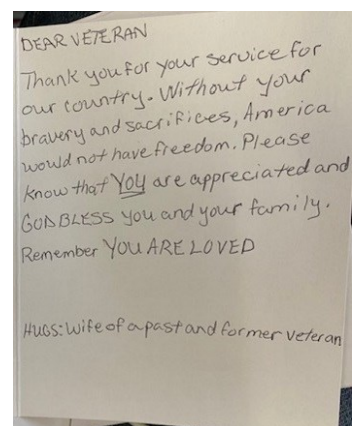 DEAR VETERAN
Thank you for your service for
our country. Without your
bravery and sacrifices, America
would not have freedom. Please
know that YOU are appreciated and
GOD BLESS you and your family.
Remember YOU ARE LOVED
HUGS: Wife of a past and former veteran